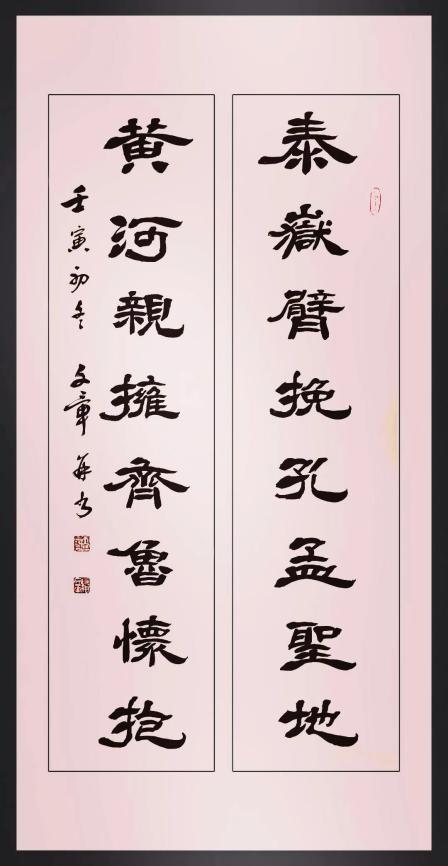 泰嶽臂挽孔孟聖地
黄河親擁齊魯懷抱
壬寅初冬 文章并书